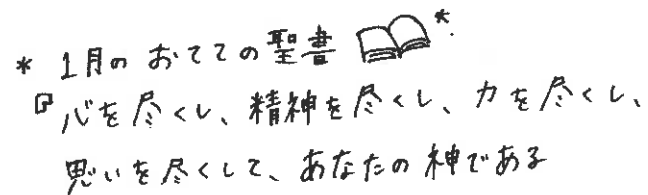 * 1月の おててての聖書 *
『心を尽くし、精神を尽くし、力を尽くし、
思いを尽くして、あなたの神である